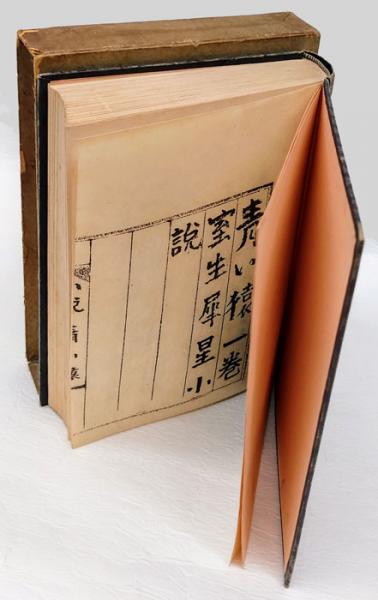 青い猿一巻
室生犀星小
説